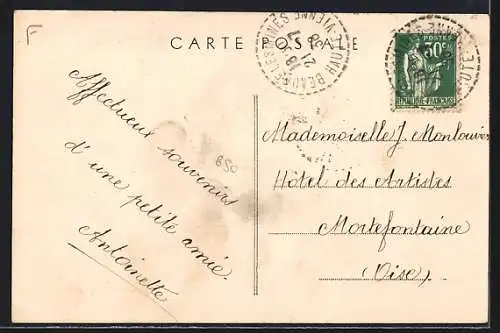 F
CARTE POSTALE
BEAUNE LES MINES
Hte VIENNE
18
21
7
38
POSTES
30c
RÉPUBLIQUE FRANÇAISE
Affectueux souvenirs
d'une petite amie.
Antoinette
850
Mademoiselle J. Monlouvier
Hôtel des Artistes
Mortefontaine
(Oise)